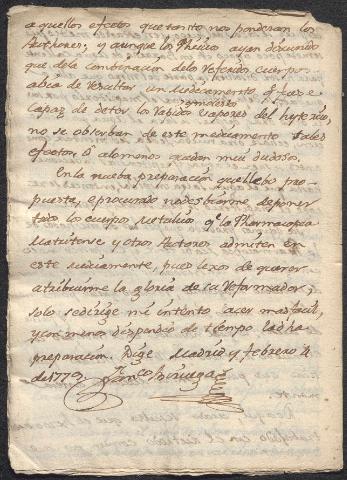 aquellos efectos que tanto nos ponderan los
Authores; y aunque los Phisicos ayan deducido
que de la combinacion de los referidos cuerpos
abia de resultar un medicamento q.e fuese
capaz de detener los rapidos vapores del hyterico,
no se obserban de este medicamento tales
efectos, ô alomenos quedan mui dudosos.
En la nueba preparacion que llebo pro-
puesta, e procurado no desbiarme de poner
todo los cuerpos metalicos q.e la Pharmacopea
Matritense y otros Autores admiten en
este medicamento, pues lexos de querer
atribuirme la gloria de su Reformador,
solo se dirige mi intento acer mas facil,
y con menos dispendio de tiempo la dha
preparacion. Dige Madrid y febrero 4
de 1779.